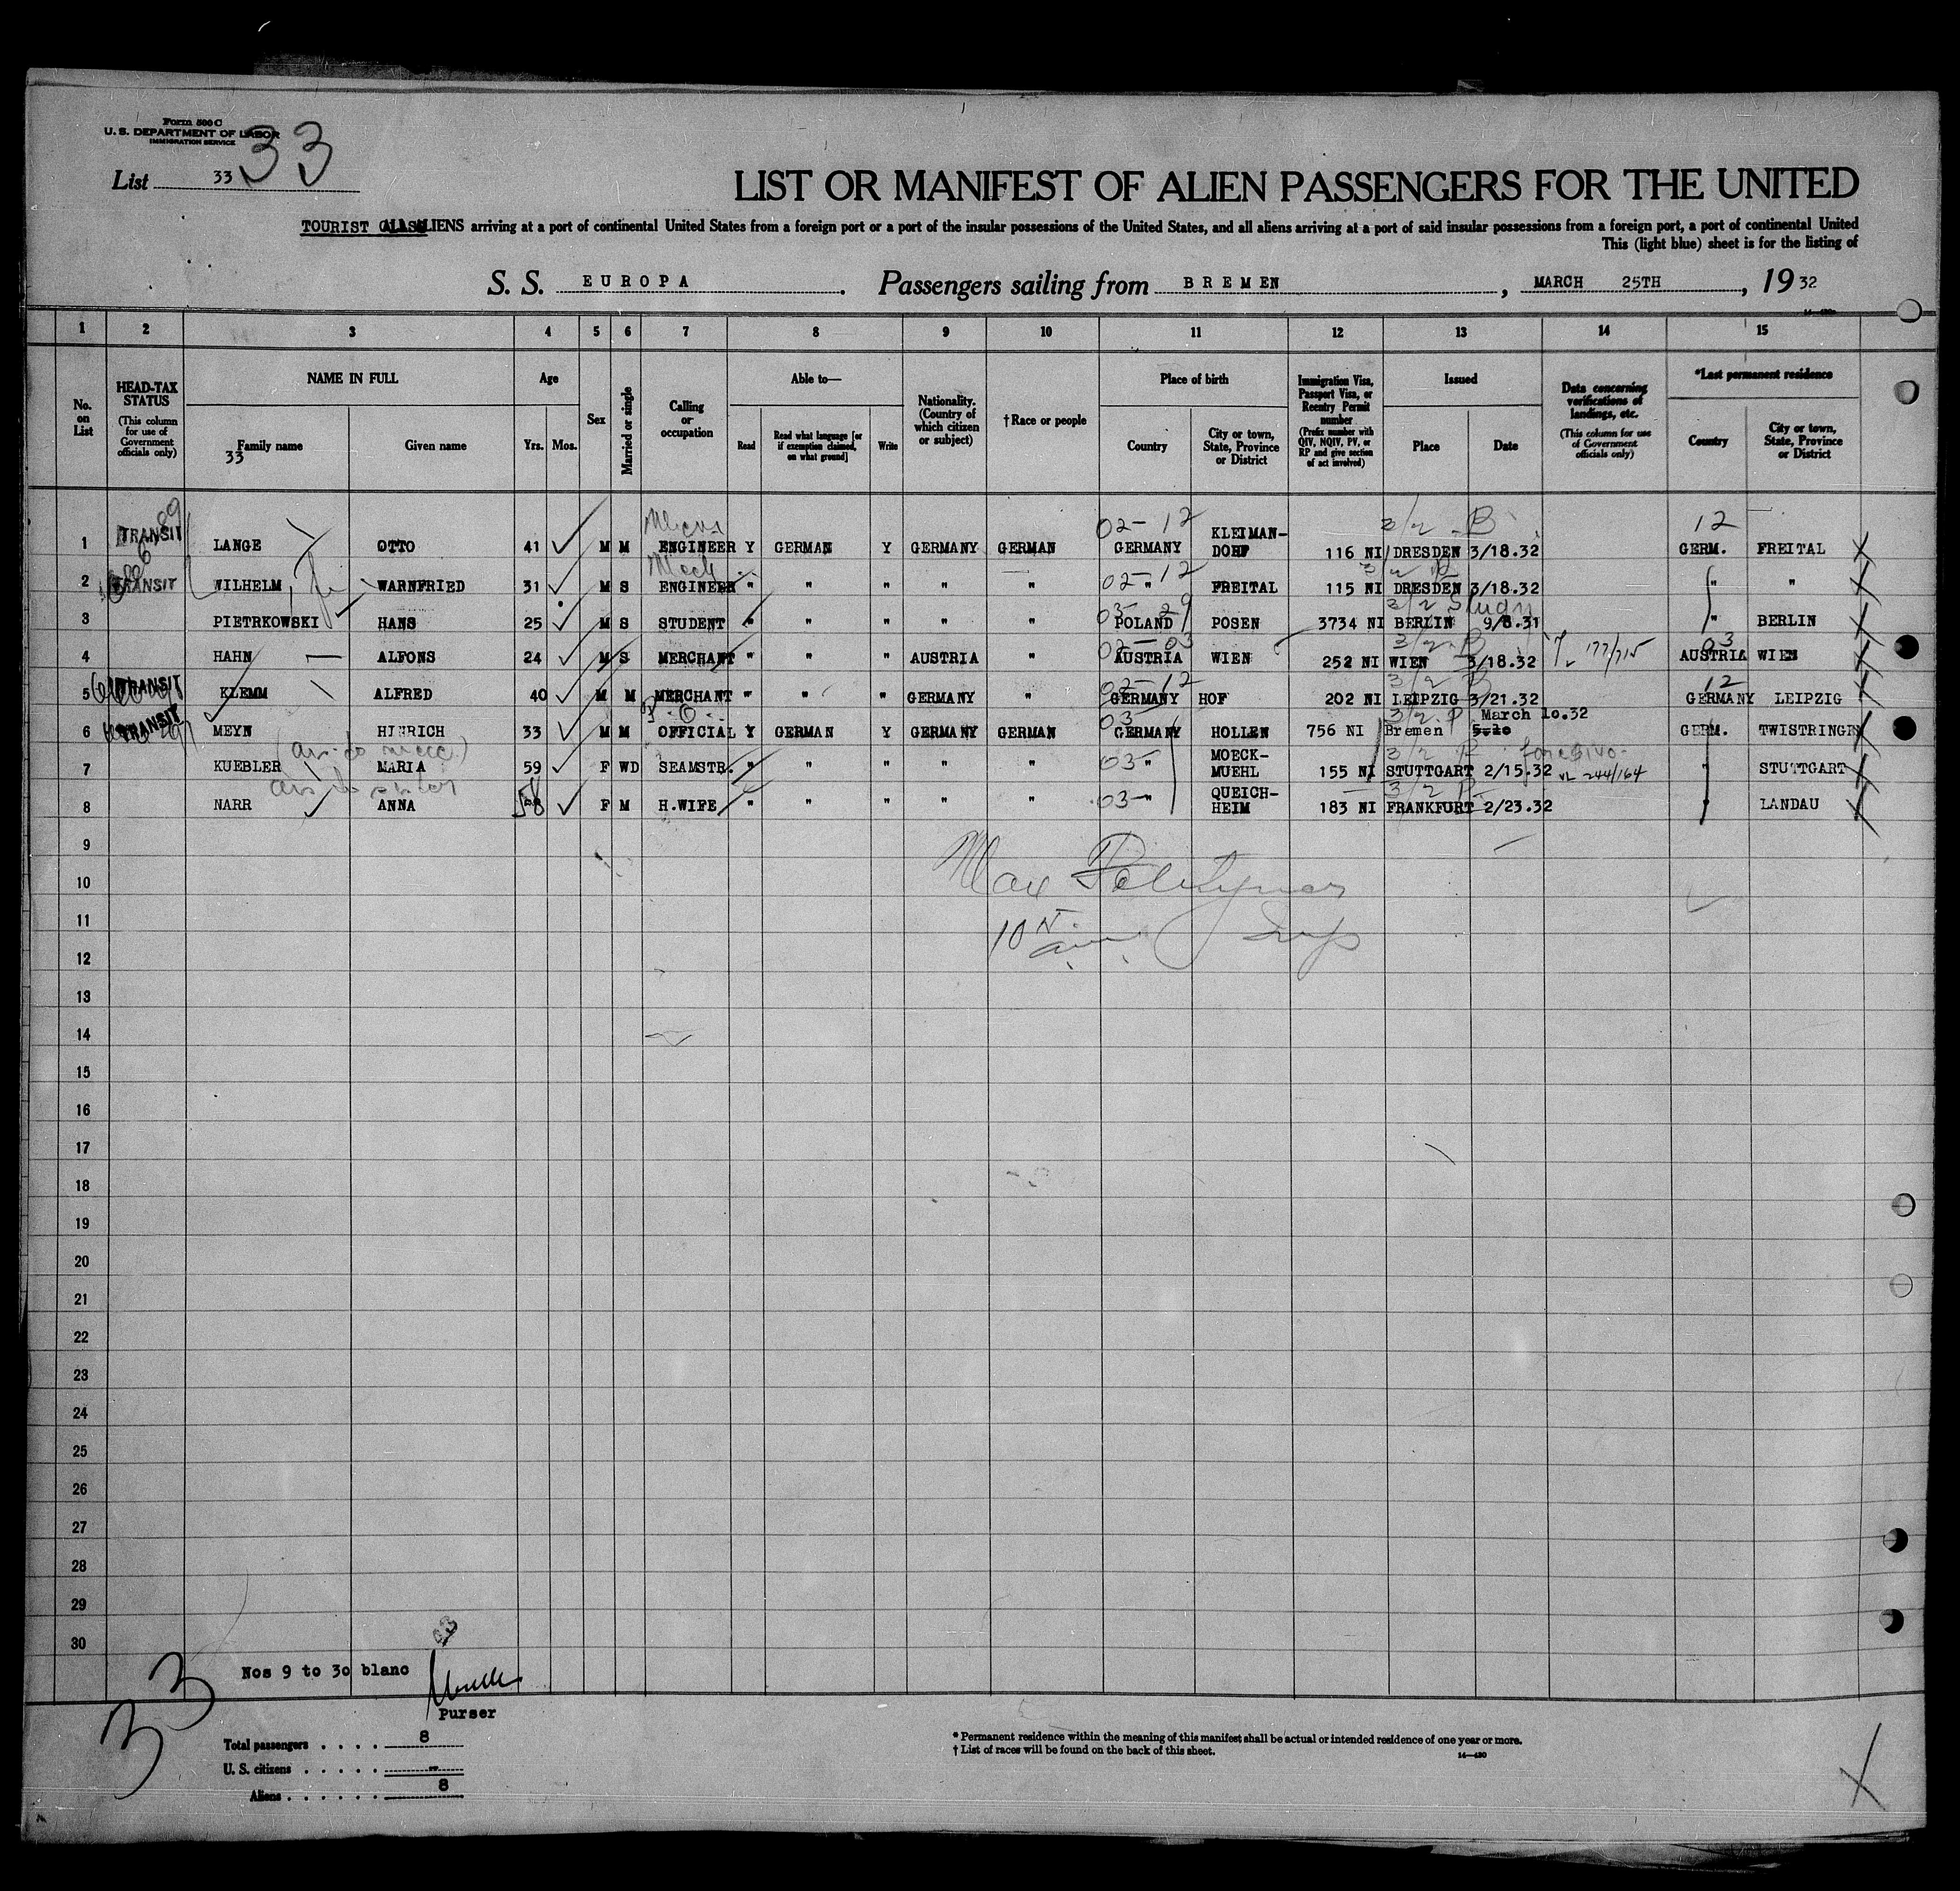 Form 500 C
U. S. DEPARTMENT OF LABOR
IMMIGRATION SERVICE
List 33 33
LIST OR MANIFEST OF ALIEN PASSENGERS FOR THE UNITED
TOURIST CLASS ALIENS arriving at a port of continental United States from a foreign port or a port of the insular possessions of the United States, and all aliens arriving at a port of said insular possessions from a foreign port, a port of continental United
This (light blue) sheet is for the listing of
S. S. EUROPA. Passengers sailing from BREMEN, MARCH 25TH, 1932
1 2 3 4 5 6 7 8 9 10 11 12 13 14 15
No. on List
HEAD-TAX STATUS (This column for use of Government officials only)
NAME IN FULL
Family name
Given name
33
Age
Yrs. Mos.
Sex
Married or single
Calling or occupation
Able to—
Read
Read what language [or if exemption claimed, on what ground]
Write
Nationality. (Country of which citizen or subject)
†Race or people
Place of birth
Country
City or town, State, Province or District
Immigration Visa, Passport Visa, or Reentry Permit number (Prefix number with QIV, NQIV, PV, or RP and give section of act involved)
Issued
Place
Date
Data concerning verifications of landings, etc. (This column for use of Government officials only)
*Last permanent residence
Country
City or town, State, Province or District
1 TRANSIT LANGE OTTO 41 M M ENGINEER Y GERMAN Y GERMANY GERMAN 02-12 GERMANY KLEIMAN-DORF 116 NI DRESDEN 3/18.32 12 GERM. FREITAL
2 TRANSIT WILHELM, WARNFRIED 31 M S Mech ENGINEER " " " " " 02-12 " FREITAL 115 NI DRESDEN 3/18.32 " "
3 PIETRKOWSKI HANS 25 M S STUDENT " " " " " 03 29 POLAND POSEN 3734 NI 3/2 Study BERLIN 9/8.31 " BERLIN
4 HAHN ALFONS 24 M S MERCHANT " " " AUSTRIA " 02-03 AUSTRIA WIEN 252 NI 3/2 B WIEN 3/18.32 177/715 03 AUSTRIA WIEN
5 TRANSIT KLEMM ALFRED 40 M M MERCHANT " " " GERMANY " 02-12 GERMANY HOF 202 NI LEIPZIG 3/21.32 12 GERMANY LEIPZIG
6 TRANSIT MEYN HINRICH 33 M M OFFICIAL Y GERMAN Y GERMANY GERMAN 03 GERMANY HOLLEN 756 NI 3/2 P Bremen March 10.32 GERM. TWISTRINGEN
7 KUEBLER MARIA 59 F WD SEAMSTR. " " " " " 03- " MOECK-MUEHL 155 NI 3/2 P STUTTGART 2/15.32 VL 244/164 " STUTTGART
8 NARR ANNA 58 F M H.WIFE " " " " " 03- " QUEICH-HEIM 183 NI 3/2 P FRANKFURT 2/23.32 " LANDAU
9
10 Max
11
12
13
14
15
16
17
18
19
20
21
22
23
24
25
26
27
28
29
30
Nos 9 to 30 blanc
Purser
33
Total passengers . . . . 8
U. S. citizens . . . . . --
Aliens . . . . . . 8
* Permanent residence within the meaning of this manifest shall be actual or intended residence of one year or more.
† List of races will be found on the back of this sheet.
14—430